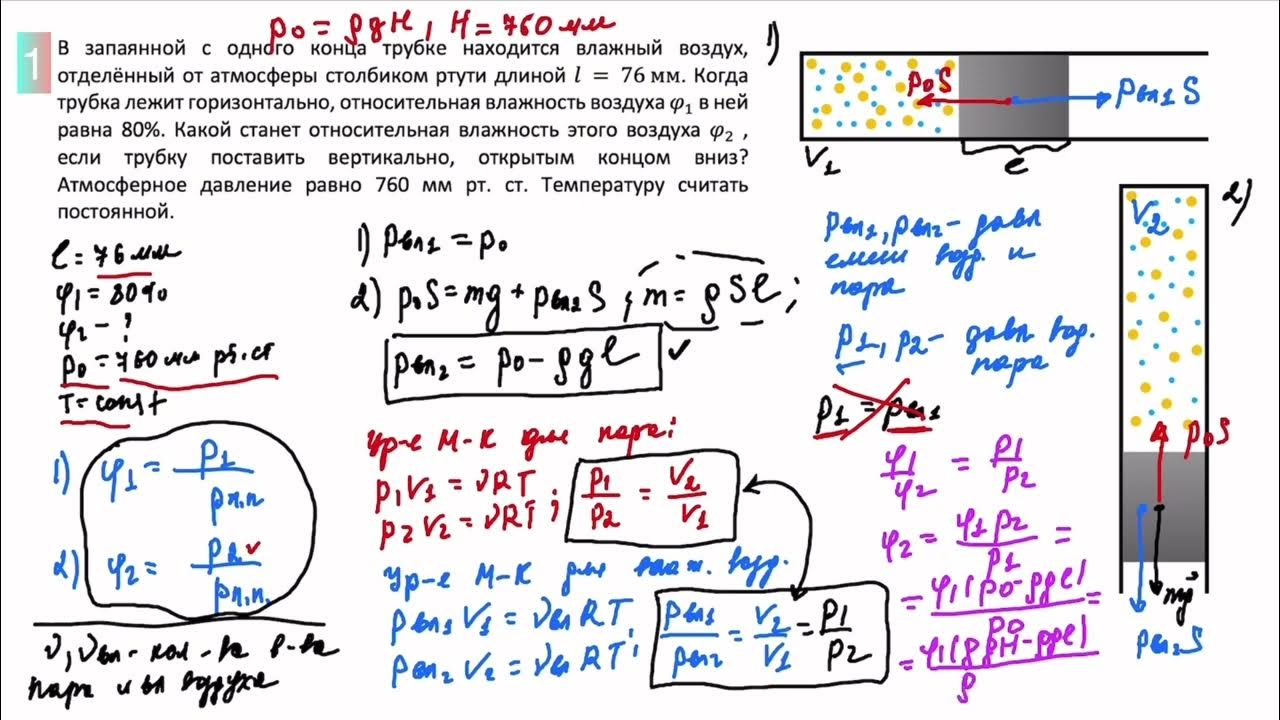 p₀ = ρgH, H = 760 мм
1
В запаянной с одного конца трубке находится влажный воздух,
отделённый от атмосферы столбиком ртути длиной l = 76 мм. Когда
трубка лежит горизонтально, относительная влажность воздуха φ₁ в ней
равна 80%. Какой станет относительная влажность этого воздуха φ₂ ,
если трубку поставить вертикально, открытым концом вниз?
Атмосферное давление равно 760 мм рт. ст. Температуру считать
постоянной.
l = 76 мм
φ₁ = 80%
φ₂ - ?
p₀ = 760 мм рт. ст
T = const
1) φ₁ = p₁/pн.п
2) φ₂ = p₂/pн.п.
ν, νвл - кол-ва в-ва
пара и вл воздуха
1) pвл₁ = p₀
2) p₀S = mg + pвл₂S , m = ρSl ;
pвл₂ = p₀ - ρgl
Ур-е М-К для пара:
p₁V₁ = νRT
p₂V₂ = νRT ;
p₁/p₂ = V₂/V₁
Ур-е М-К для влаж. возд.
pвл₁V₁ = νвлRT
pвл₂V₂ = νвлRT ;
pвл₁/pвл₂ = V₂/V₁ = p₁/p₂
1)
p₀S
pвл₁S
V₁
l
pвл₁, pвл₂ - давл
смеси возд. и
пара
p₁, p₂ - давл вод.
пара
p₁ = pвл₁
φ₁/φ₂ = p₁/p₂
φ₂ = φ₁p₂/p₁ =
= φ₁(p₀-ρgl)/p₀ =
= φ₁(ρgH-ρgl)/ρ
2)
V₂
p₀S
mg
pвл₂S